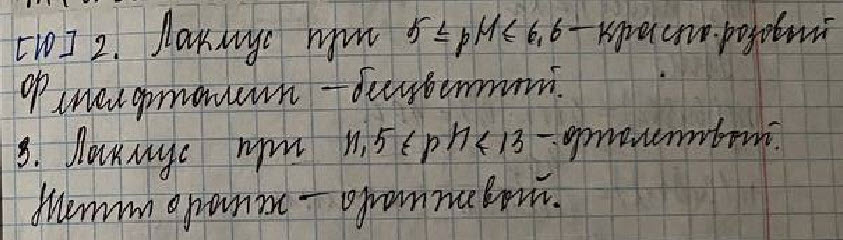 [10] 2. Лакмус при 5 ≤ pH ≤ 6,6 – красно-розовый
Фенолфталеин – бесцветный.
3. Лакмус при 11,5 ≤ pH ≤ 13 – фиолетовый.
Метил оранж – оранжевый.